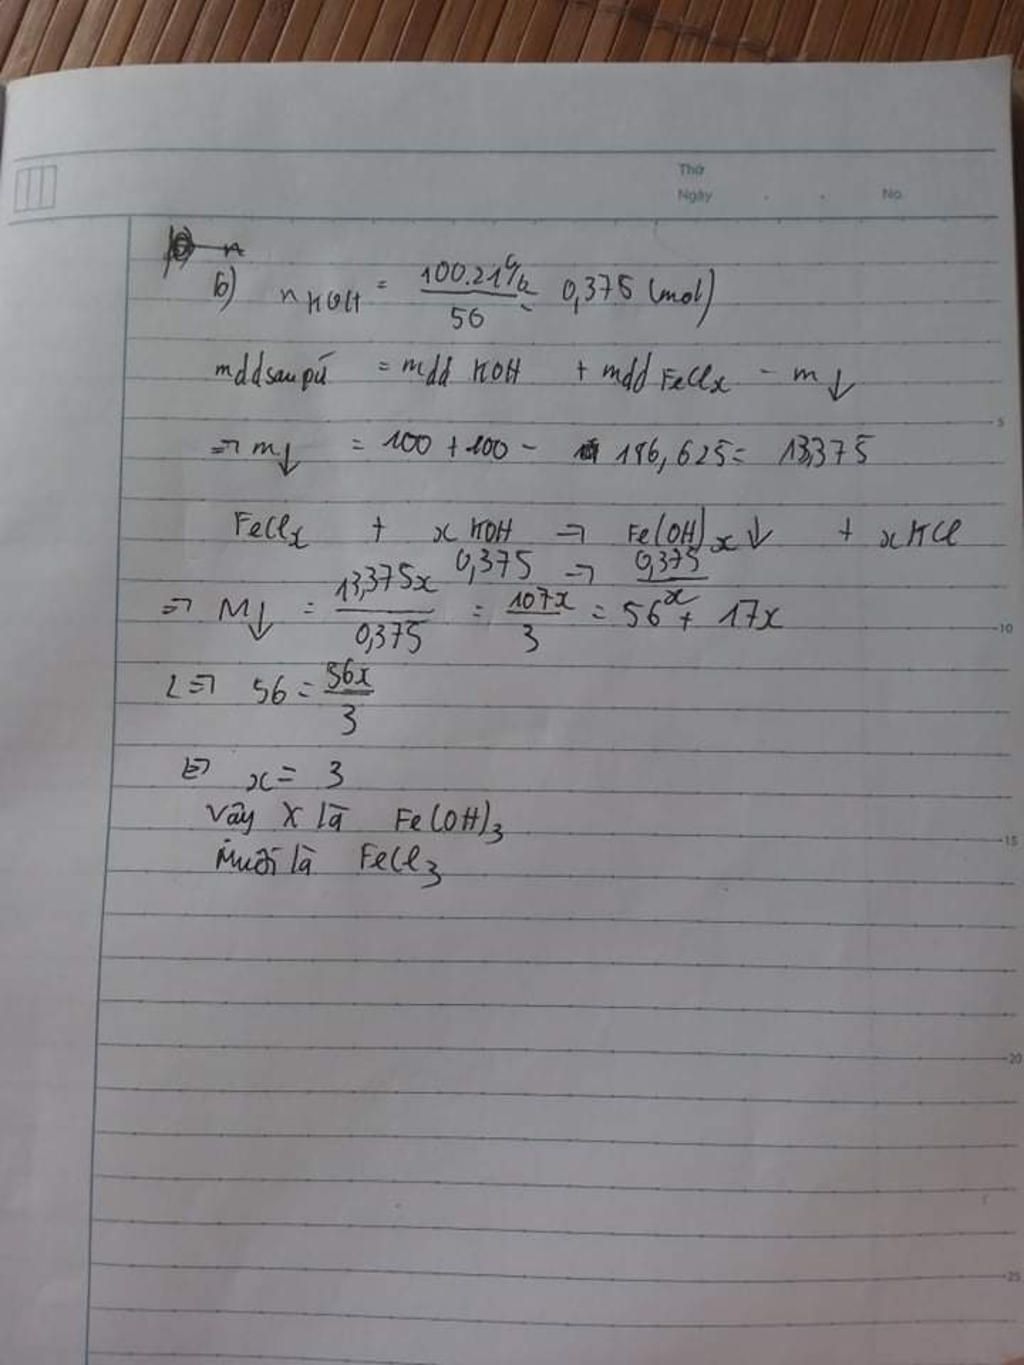 Thứ
Ngày . . No.
b) nKOH = 100.21% / 56 = 0,375 (mol)
mddsau pứ = mdd KOH + mdd FeClx - m↓
=> m↓ = 100 + 100 - 186,625 = 13,375
FeClx + xKOH => Fe(OH)x↓ + xKCl
0,375 => 0,375/x
=> M↓ = 13,375x / 0,375 = 107x / 3 = 56 + 17x
<=> 56 = 56x / 3
<=> x = 3
Vậy X là Fe(OH)3
Muối là FeCl3
5
10
15
20
25